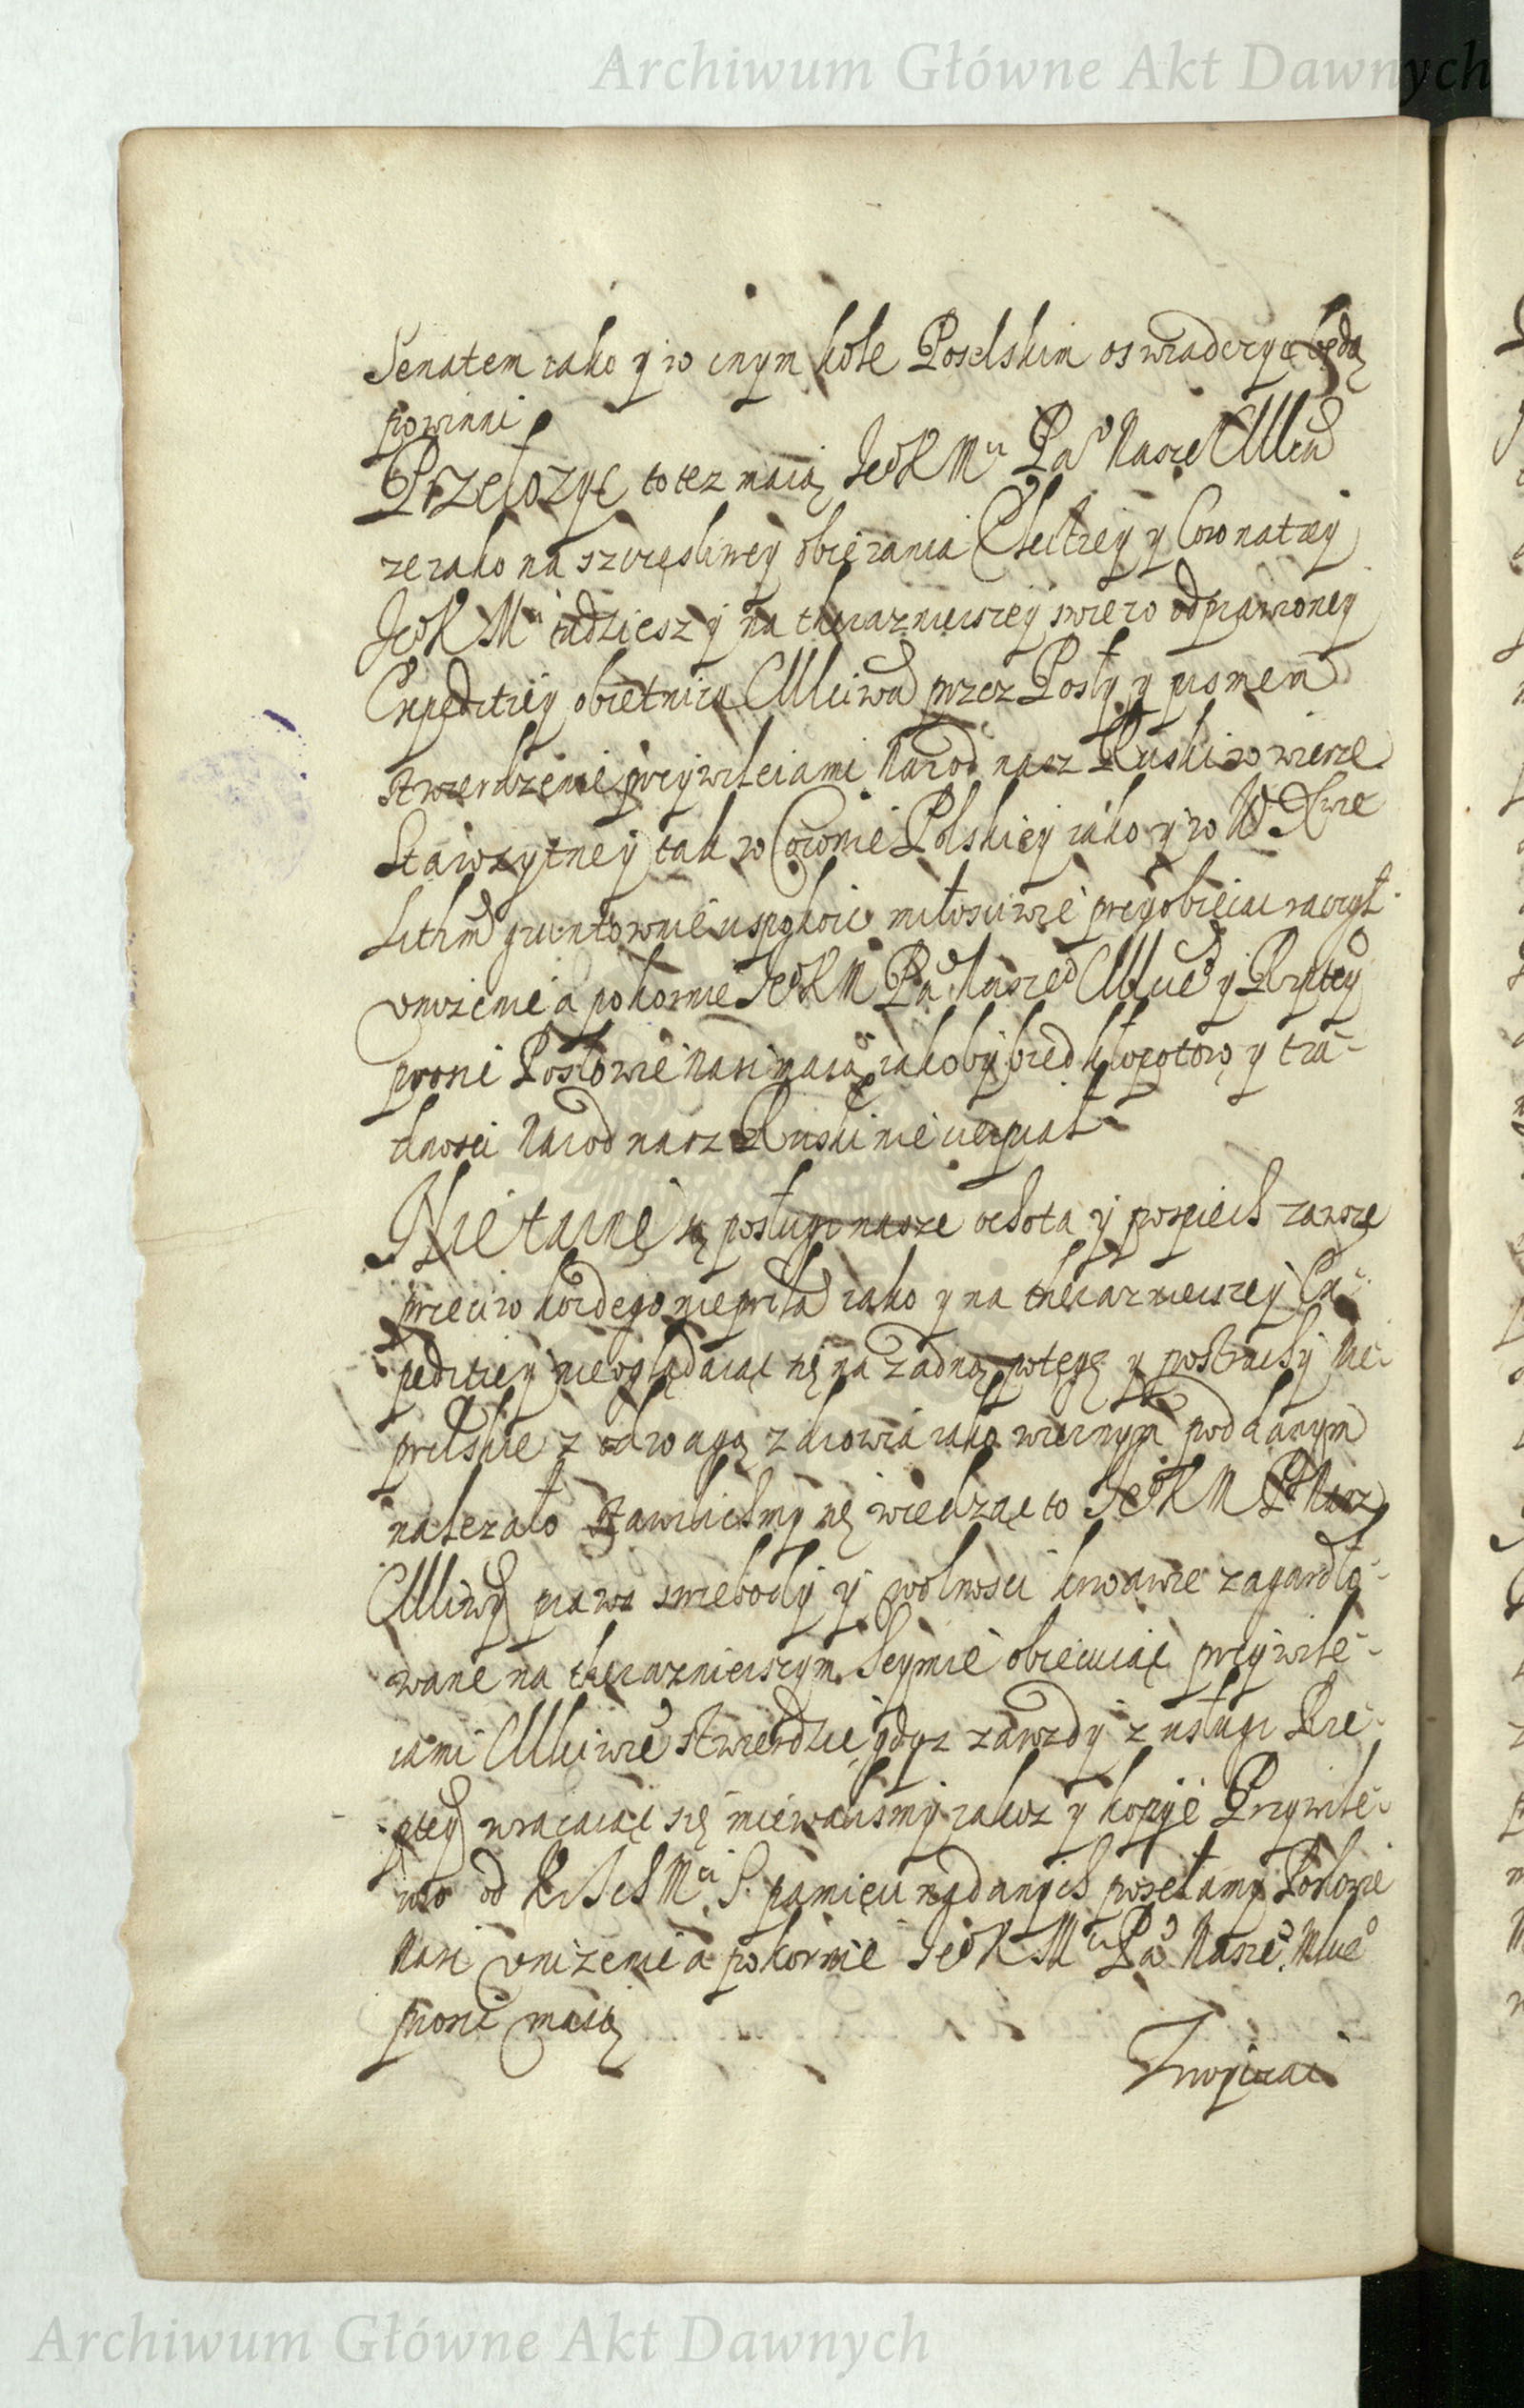 Archiwum Główne Akt Dawnych
Senatem iako y w inym kole Poselskim oswiadczyc będą
powinni
Przełozyc to tez maią Je⁰ K Mci Pa⁰ Nasze⁰ Młcie⁰
ze iako na szczęsliwey obierania Electiey y Coronatiey
Je⁰ K Mci tudziesz y na theraznieiszey swiezo odprawioney
Expeditiey obietnicą Młciwą przez Posły y pismem
stwierdzenie przywileiami Narod nasz Ruski w wierze
Starozytney tak w Coronie Polskiey iako y w W X twie
Lithm gruntownie uspokoic miłosciwie przyobiecac raczył
vnizenie a pokornie Je⁰ K M Pa⁰ Nasze⁰ Młcie⁰ y Rzptey
prosic Posłowie Nasi maią iakoby bied kłopotow y tru-
dnosci Narod nasz Ruski nie cierpiał
Nie tayne są posługi nasze ochota y pospiech zawsze
przeciw kozdego nieprzla iako y na theraznieiszey Ex-
peditiey nieoglądaiąc się na zadną potęgę y postrachy nie-
przlskie z odwagą zdrowia iako wiernym poddanym
nalezało stawilichmy się wiedząc to Je⁰ K M P Nasz
Młciwy prawa swiebody y wolnosci krwawie zagardło-
wane na theraznieiszym Seymie obiecuiąc przywile-
iami Młciwie stwierdzic gdyz zawzdy z usługi Rze-
ptey wracaiąc się miewalismy iakoz y kopije Przywile-
iow od Kr Ich Mci S. pamięci nadanych posełamy Posłowie
Nasi vnizenie a pokornie Je⁰ K Mci Pa⁰ Nasze⁰ Młcie⁰
prosic maią
Archiwum Główne Akt Dawnych